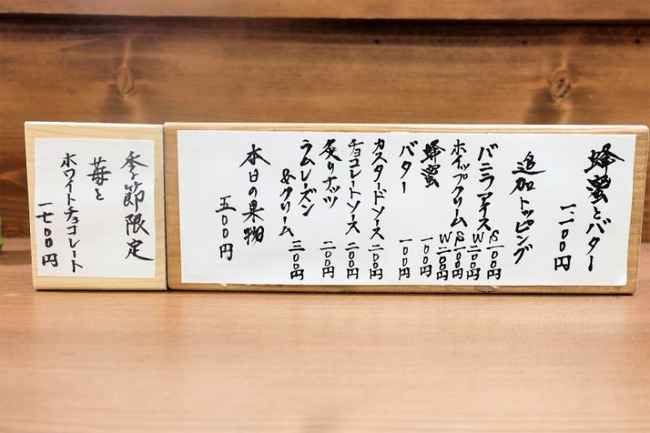 蜂蜜とバター
追加トッピング
バニラアイス S W
ホイップクリーム S W
蜂蜜 一〇〇円
バター 一〇〇円
カスタードソース 二〇〇円
チョコレートソース 二〇〇円
炙りナッツ 二〇〇円
ラムレーズン
&クリーム 三〇〇円
本日の果物
五〇〇円
季節限定
苺と
ホワイトチョコレート
一七〇〇円